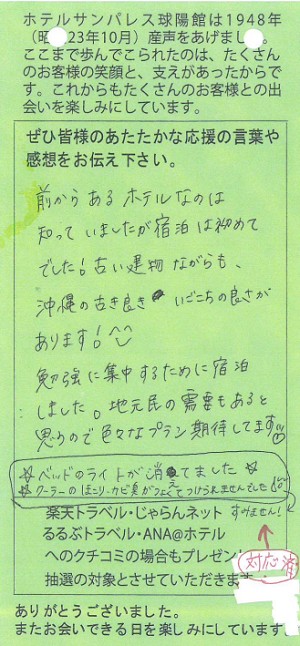 ホテルサンパレス球陽館は1948年
（昭23年10月）産声をあげまし。
ここまで歩んでこられたのは、たくさん
のお客様の笑顔と、支えがあったからで
す。これからもたくさんのお客様との出
会いを楽しみにしています。
ぜひ皆様のあたたかな応援の言葉や
感想をお伝え下さい。
前からあるホテルなのは
知っていましたが宿泊は初めて
でした！古い建物ながらも、
沖縄の古き良き いごこちの良さが
あります！
勉強に集中するために宿泊
しました。地元民の需要もあると
思うので色々なプラン期待してます
☆ベッドのライトが消えてました☆
☆クーラーのほこり・カビ臭がつよくてつけられませんでした！
楽天トラベル・じゃらんネット すみません！
るるぶトラベル・ANA@ホテル
へのクチコミの場合もプレゼン
抽選の対象とさせていただきます
対応済
ありがとうございました。
またお会いできる日を楽しみにしています